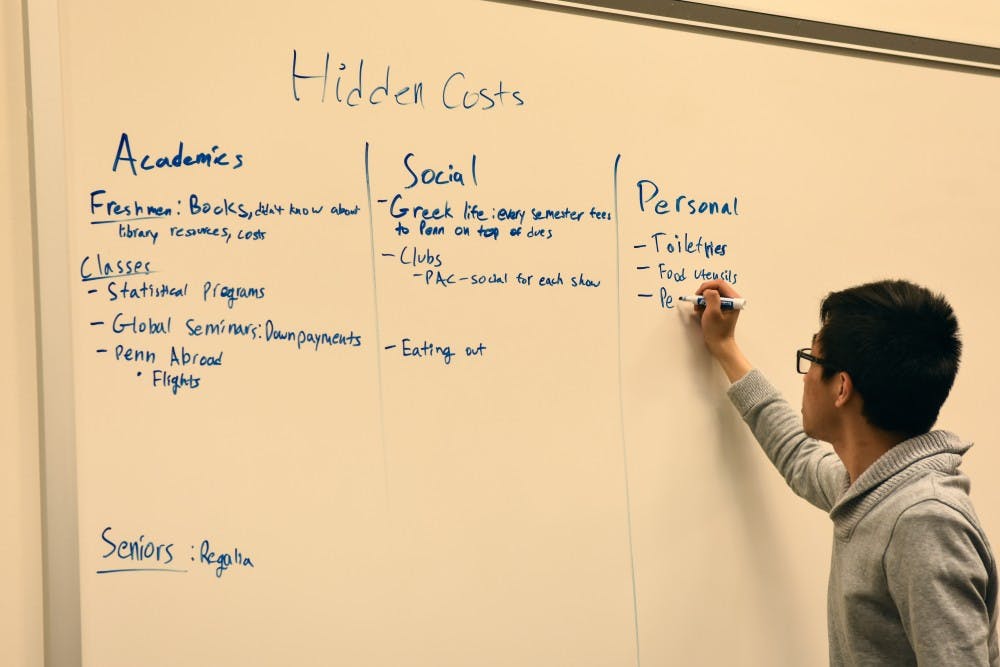 Hidden Costs
Academics
Freshmen: Books, didn't know about
library resources, costs
Classes
- Statistical Programs
- Global Seminars: Downpayments
- Penn Abroad
• Flights
Seniors: Regalia
Social
- Greek life: every semester fees
to Penn on top of dues
- Clubs
- PAC - social for each show
- Eating out
Personal
- Toiletries
- Food utensils
- Pe